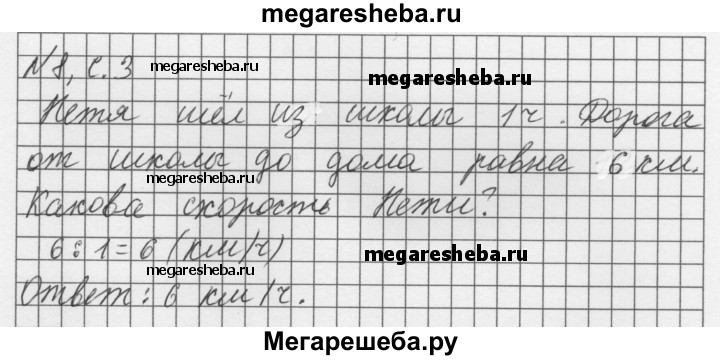 megaresheba.ru
N8, с. 3 megaresheba.ru
megaresheba.ru
Петя шёл из школы 1 ч. Дорога
от школы до дома равна 6 км.
megaresheba.ru
Какова скорость Пети?
6 : 1 = 6 (км/ч) megaresheba.ru
megaresheba.ru
Ответ: 6 км/ч.
Мегарешеба.ру